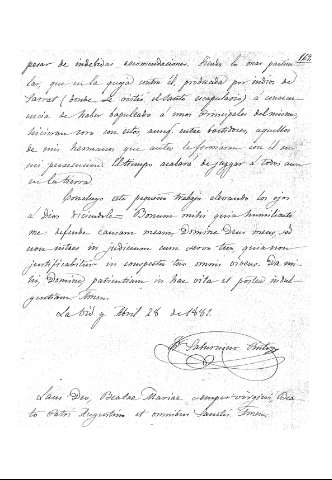 162
pesar de indebidas recomendaciones. Siendo lo mas particu-
lar, que en la queja contra él, producida por indios de
Sarrat (donde le vistió el Santo escapulario) á consecu-
encia de haber bapuleado á unos principales del mismo,
hicieran coro con estos, aunq. entre bastidores, aquellos
de mis hermanos que antes le formaron con él en
mi persecucion. El tiempo acabará de juzgar á todos aun
en la tierra.
Concluyo este pequeño trabajo elevando los ojos
á Dios diciendole = Bonum mihi quia humiliasti
me defende causam meam Domine Deus meus, et
non intres in judicium cum servo tuo quia non
justificabitur in conspectu tuo omnis vivens. Da mi-
hi, Domine, patientiam in hac vita et postea indul-
gentiam. Amen.
La Vid y Abril 28 de 1882.
Fr. Saturnino
Laus Deo, Beatae Mariae semper virgini, Bea-
to Patri Augustino et omnibus Sanctis. Amen.